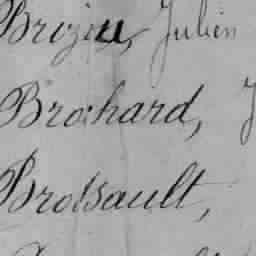 Brizeu, Julien
Brochard, J
Brossault,